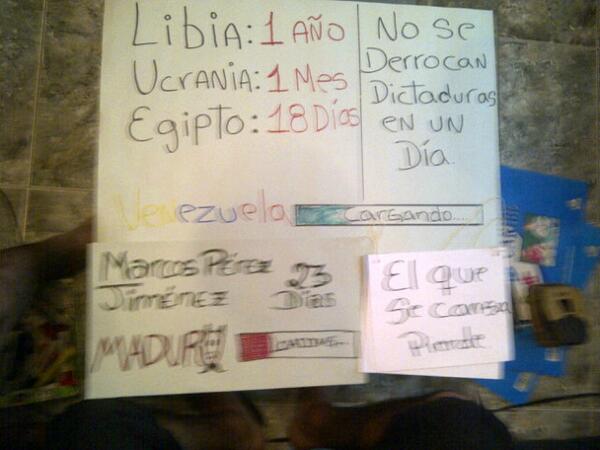 Libia: 1 Año
Ucrania: 1 Mes
Egipto: 18 Días
No se
Derrocan
Dictaduras
en un
Día.
Venezuela
Cargando....
Marcos Pérez
Jiménez
23
Días
MADURO
El que
se cansa
Pierde